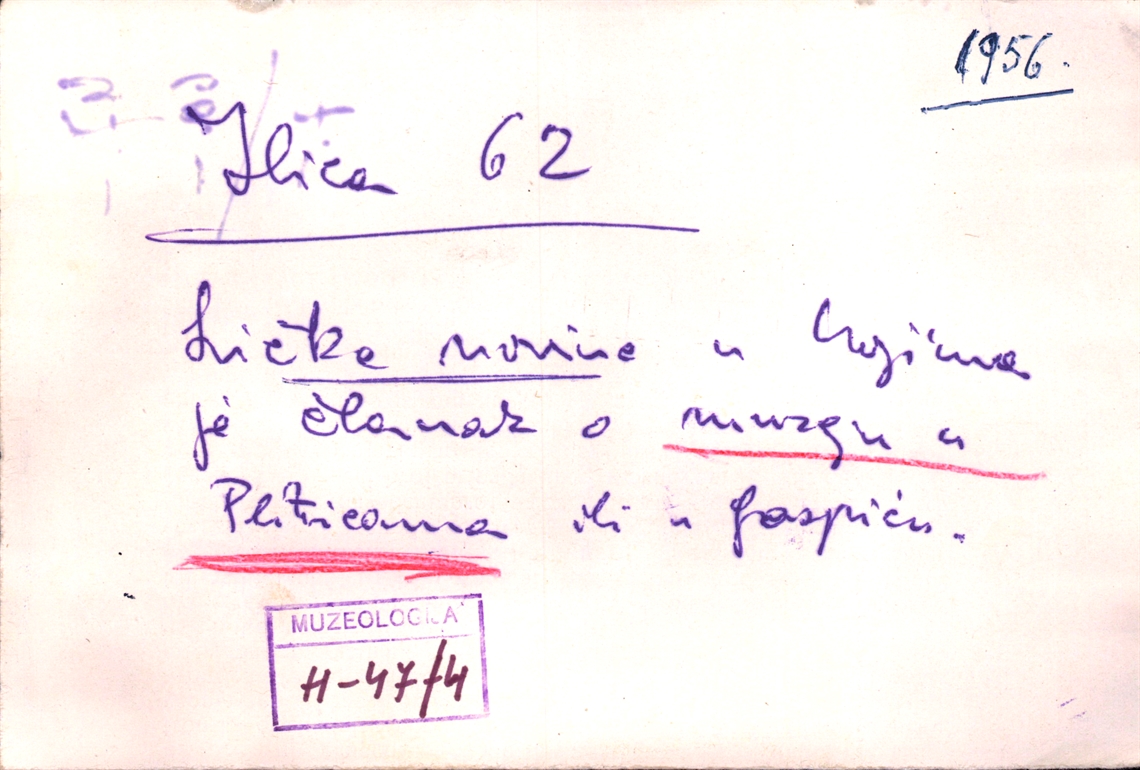 1956.
Ilica 62
Ličke novine u kojima
je članak o muzeju u
Plitvicama ili u Gospiću.
MUZEOLOGIJA
H-47/4